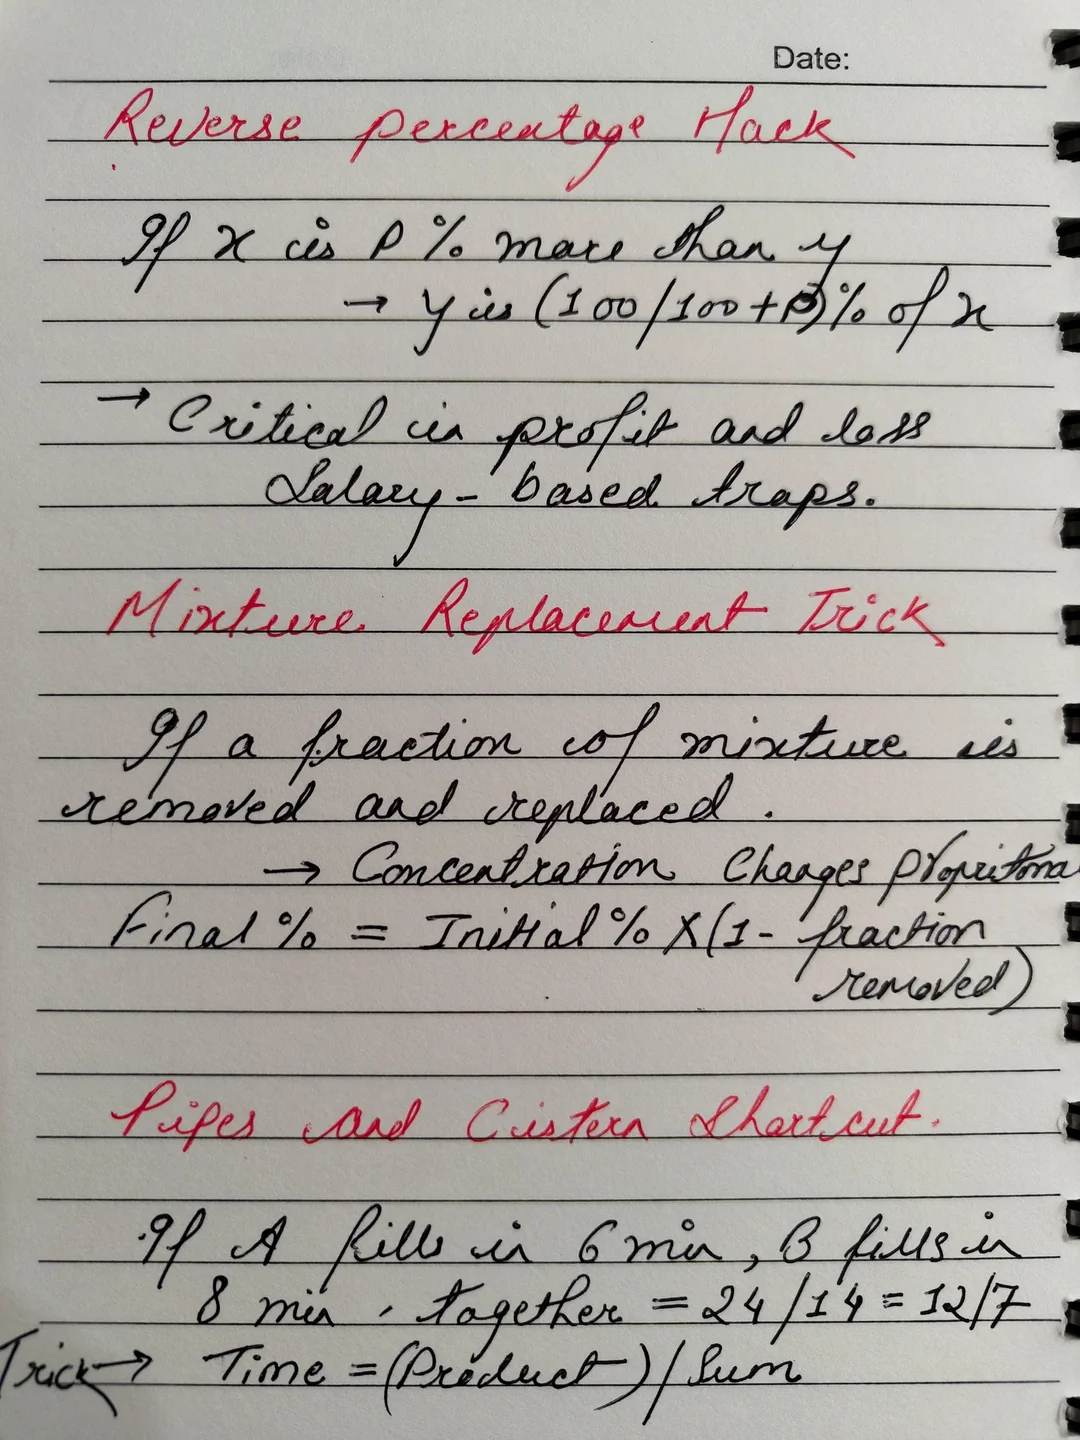 Date:
Reverse percentage Hack
If x is P% more than y
→ y is (100/100+P)% of x
→ Critical in profit and loss
Salary-based traps.
Mixture Replacement Trick
If a fraction of mixture is
removed and replaced.
→ Concentration Changes propritona
Final % = Initial % X (1- fraction
removed)
Pipes and Cistern Shortcut.
If A fills in 6 min, B fills in
8 min, together = 24/14 = 12/7
Trick → Time = (Product) / Sum